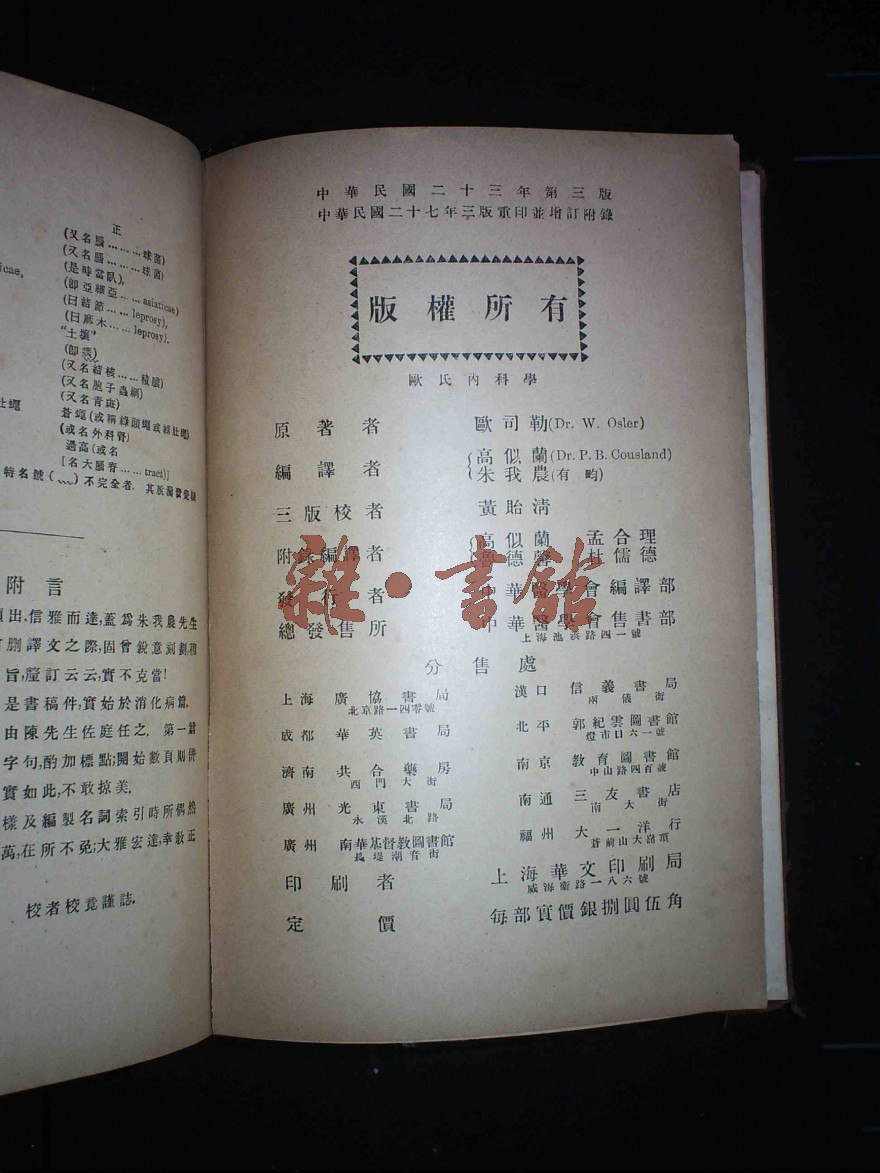 正
(又名腦………球菌)
(又名腦………球菌)
(是時當臥),
(即亞細亞……asiaticae)
(曰結節……leprosy),
(曰麻木……leprosy).
"土壤"
(又名結核……
(又名胞子蟲綱)
(又名青斑)
蒼蠅(或稱綠頭蠅或
(或名外科腎)
過高(或名
[名大腸脊……tract)]
特名號( )不完全者,其
附言
出,信雅而達,蓋爲朱我農先生
刪譯文之際,固曾銳意剡劃,稍
旨,釐訂云云,實不克當!
是書稿件,實始於消化病篇,
由陳先生佐庭任之. 第一篇
字句,酌加標點;開始數頁則併
實如此,不敢掠美.
樣及編製名詞索引時所偶然
萬,在所不免;大雅宏達,幸敎正
校者校竟謹誌.
中華民國二十三年第三版
中華民國二十七年三版重印並增訂附錄
版權所有
歐氏內科學
原著者 歐司勒(Dr. W. Osler)
編譯者 高似蘭(Dr. P. B. Cousland)
朱我農(有 畇)
三版校者 黃貽清
附錄編譯者 高似蘭 孟合理
魯德馨 杜儒德
發行者 中華醫學會編譯部
總發售所 中華醫學會售書部
上海池浜路四一號
分售處
上海 廣協書局 漢口 信義書局
北京路一四零號 兩儀街
成都 華英書局 北平 郭紀雲圖書館
燈市口六一號
濟南 共合藥房 南京 敎育圖書館
西門大街 中山路四百號
廣州 光東書局 南通 三友書店
永漢北路 南大街
廣州 南華基督敎圖書館 福州 大一洋行
長堤潮音街 蒼前山大嶺頂
印刷者 上海華文印刷局
威海衞路一八六號
定價 每部實價銀捌圓伍角
雜·書館